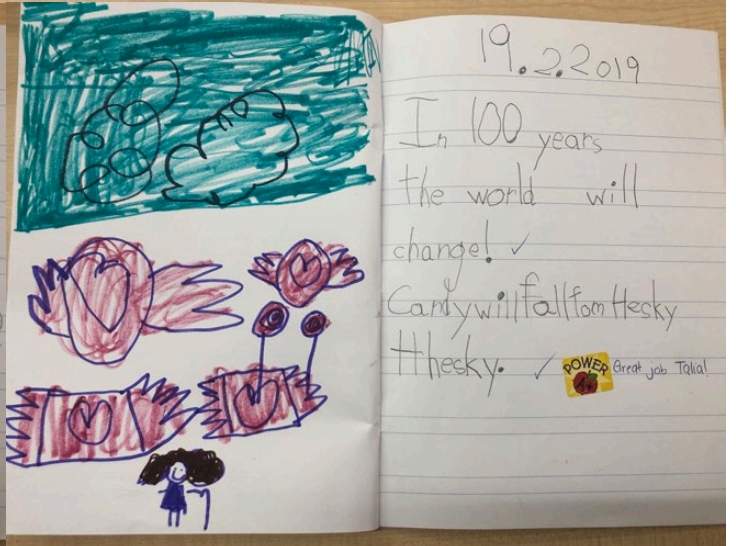 19.2.2019
In 100 years
the world will
change! ✓
Candy will fall fom Hesky
Hhesky. ✓
POWER A+ Great job Talia!